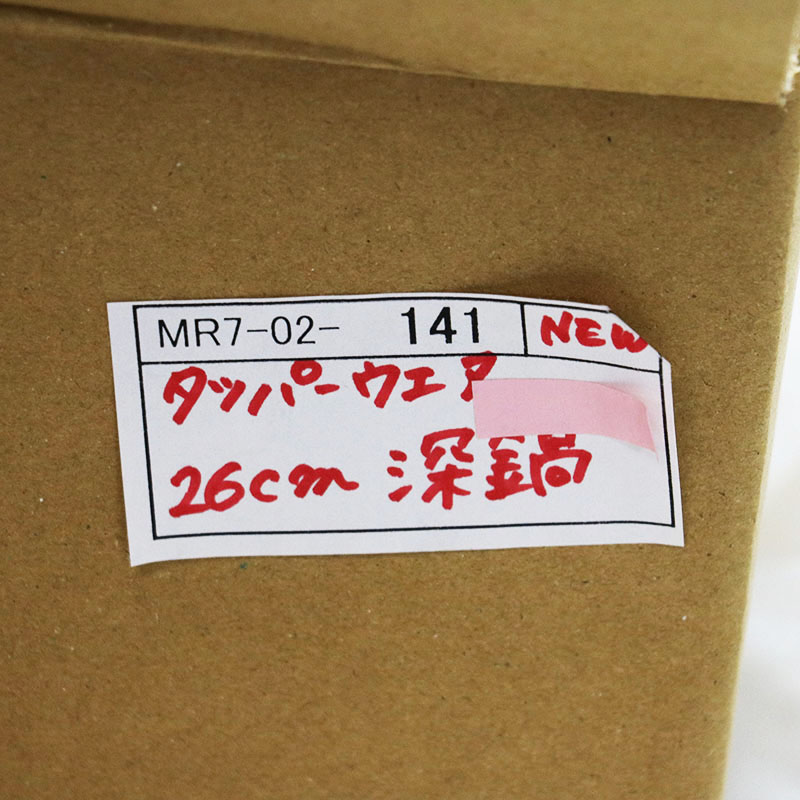 MR7-02- 141 NEW
タッパーウエア
26cm 深鍋